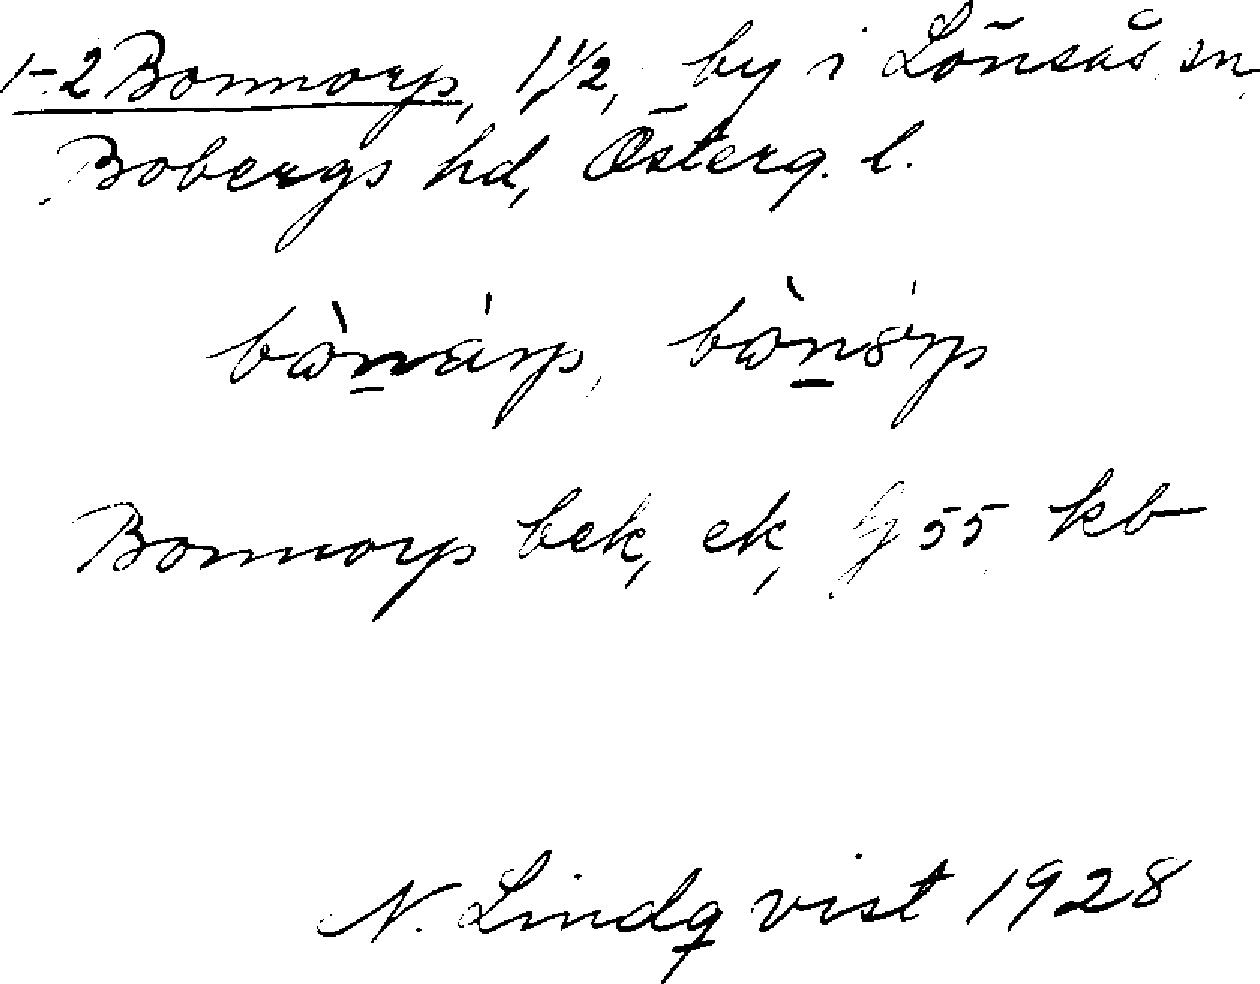 1-2 Bonnorp, 1 1/2, by i Lönsås sn,
Bobergs hd, Österg. l.
Bonnorp bek, ek, Gj 55 kb
N. Lindqvist 1928